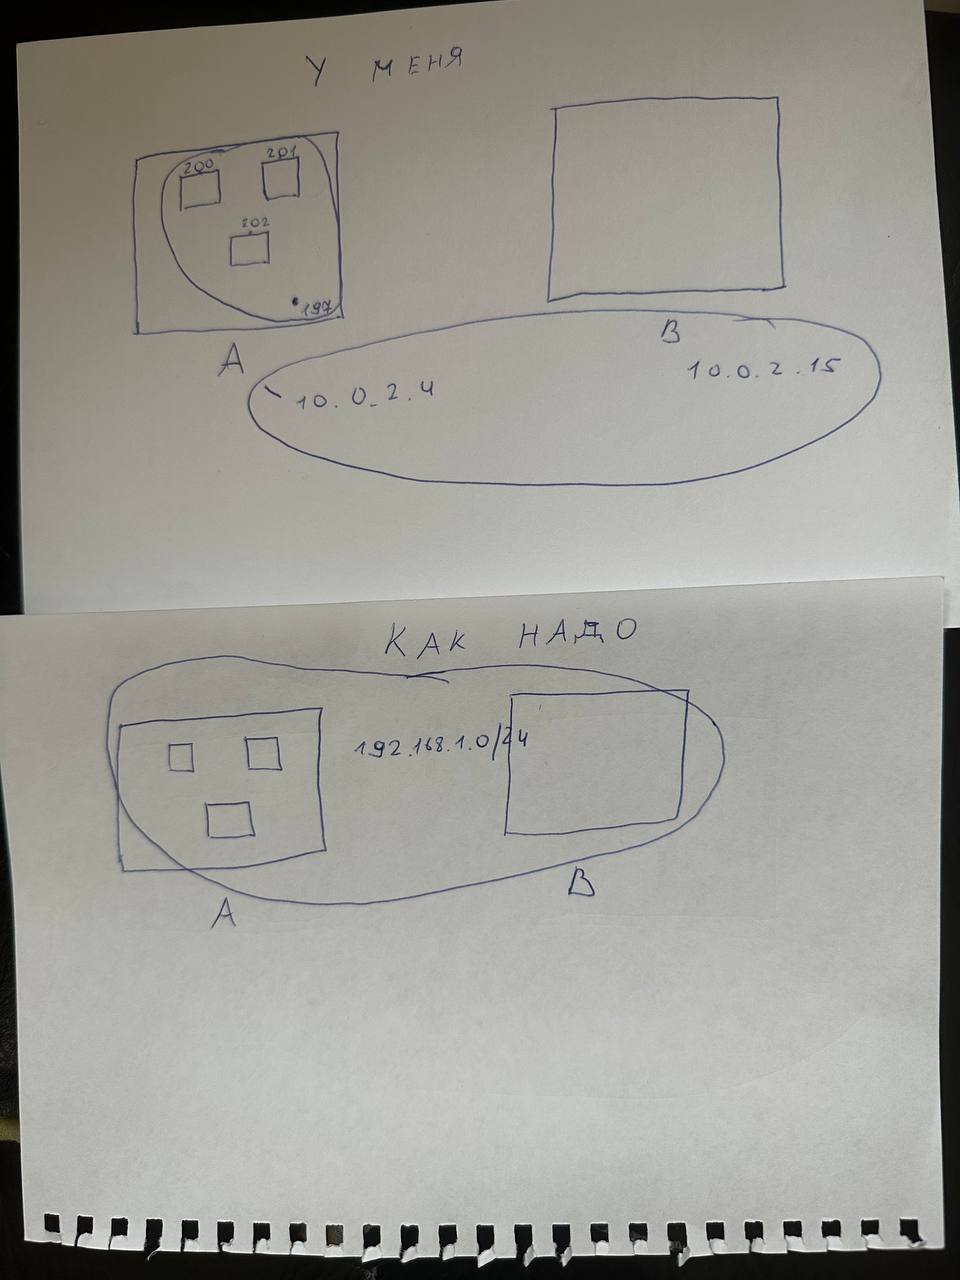 У МЕНЯ
200
201
202
197
A
B
10.0.2.4
10.0.2.15
КАК НАДО
192.168.1.0/24
A
B